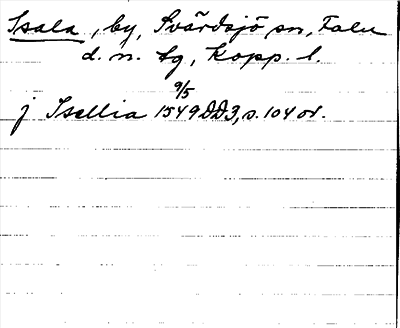 Isala, by, Svärdsjö sn, Falu
d. n. tg, Kopp. l.
9/5
j Isellia 1549 DD3, s. 104 or.